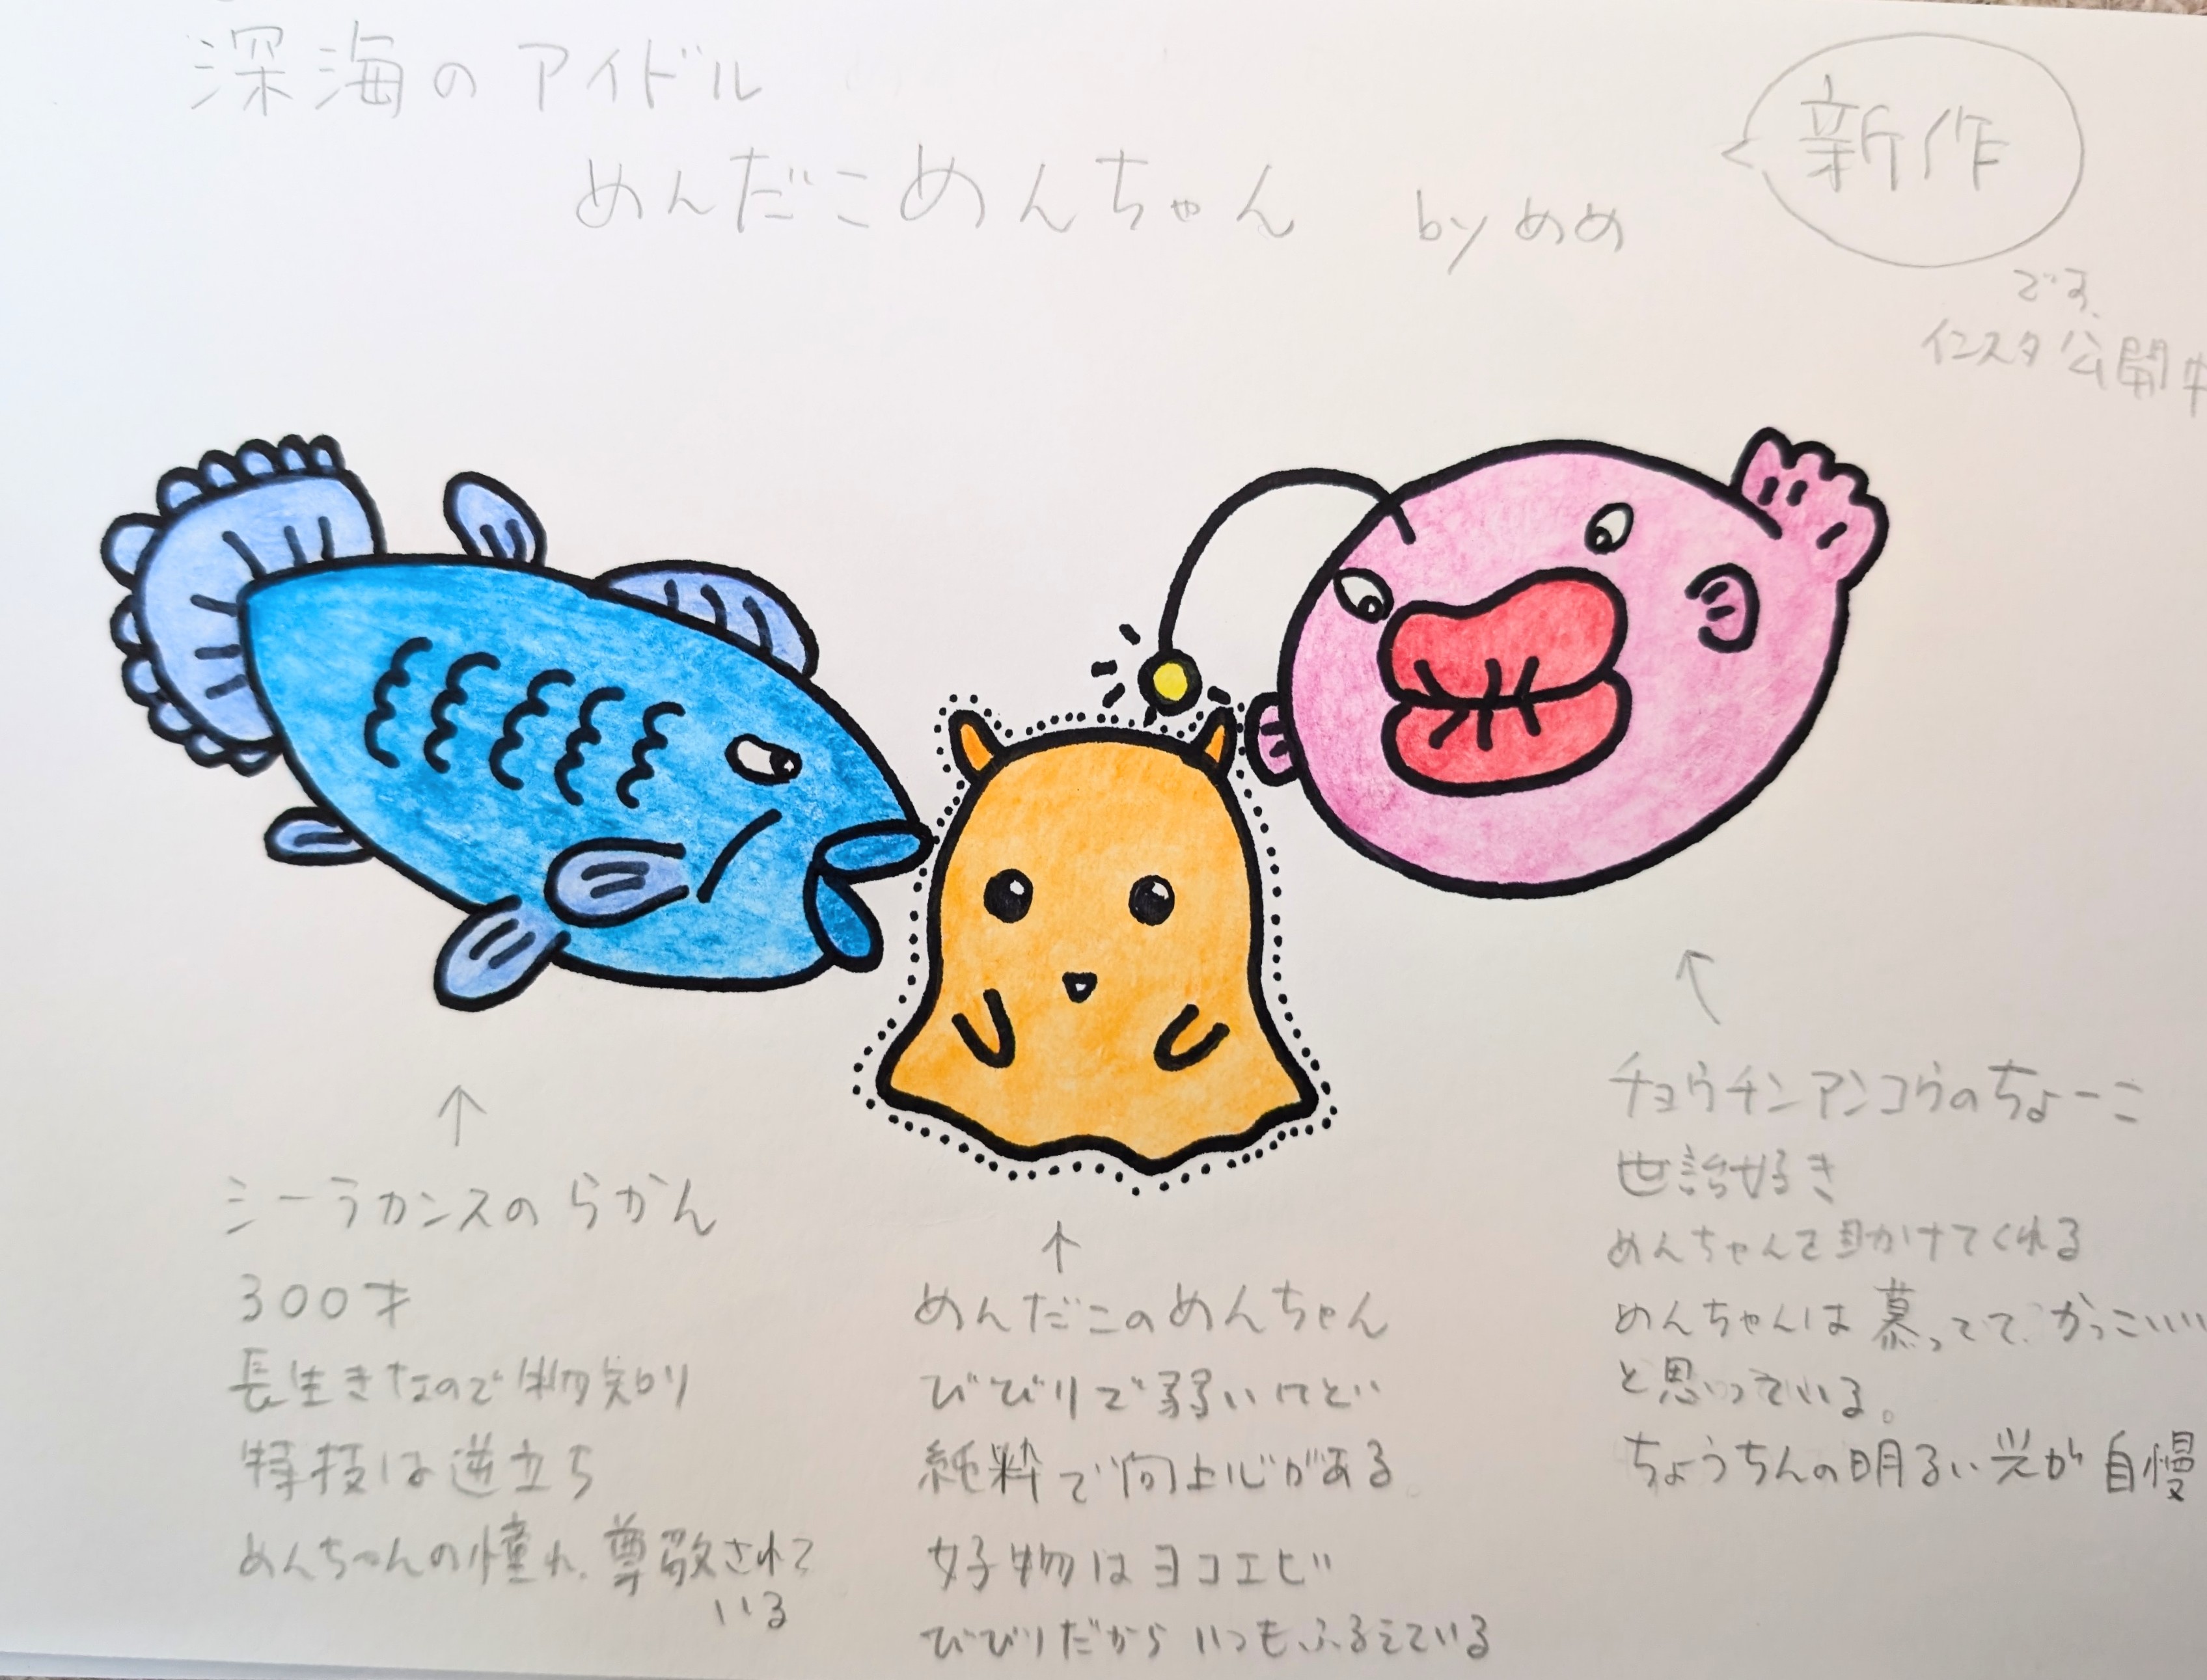 深海のアイドル
めんだこめんちゃん byめめ
新作
です、
インスタ公開中
シーラカンスのらかん
300才
長生きなので物知り
特技は逆立ち
めんちゃんの憧れ、尊敬されて
いる
めんだこのめんちゃん
びびりで弱いけど
純粋で向上心がある
好物はヨコエビ
びびりだからいつもふるえている
チョウチンアンコウのちょーこ
世話好き
めんちゃんを助けてくれる
めんちゃんは慕ってて、かっこいい
と思っている。
ちょうちんの明るい光が自慢